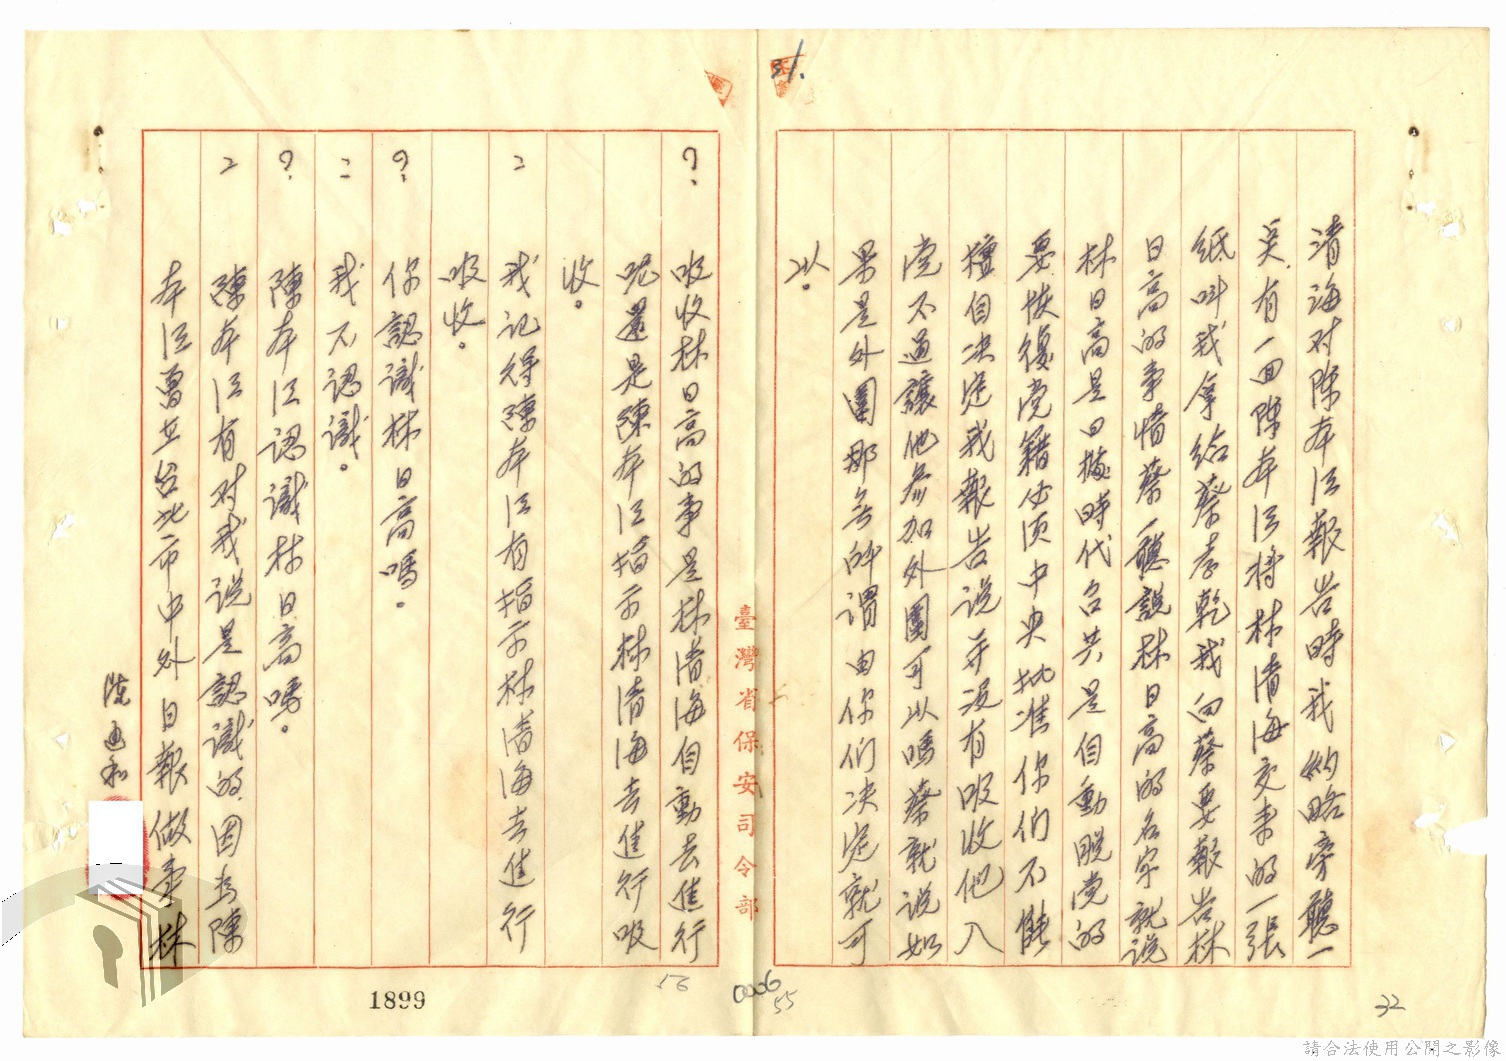 31.
清海对陳本江報告時我約略旁聽一
吳.有一回陳本江將林清海交來的一張
紙叫我拿給蔡孝乾我向蔡要報告林
日高的事情蔡一聽説林日高的名字就説
林日高是日據時代台共是自動脱党的
要恢復党籍必須中央批准你们不能
擅自决定我報告说並没有吸收他入
党不过讓他参加外圍可以嗎蔡就说如
果是外圍那無所謂由你们决定就可
以。
臺灣省保安司令部
? 吸收林日高的事是林清海自動去進行
呢還是陳本江指示林清海去進行吸
收。
: 我记得陳本江有指示林清海去進行
吸收。
? 你認識林日高嗎。
: 我不認識。
? 陳本江認識林日高嗎。
: 陳本江有对我说是認識的.因为陳
本江曾在台北市中外日報做事林
陳通和
1899
56
0006
55
32
請合法使用公開之影像